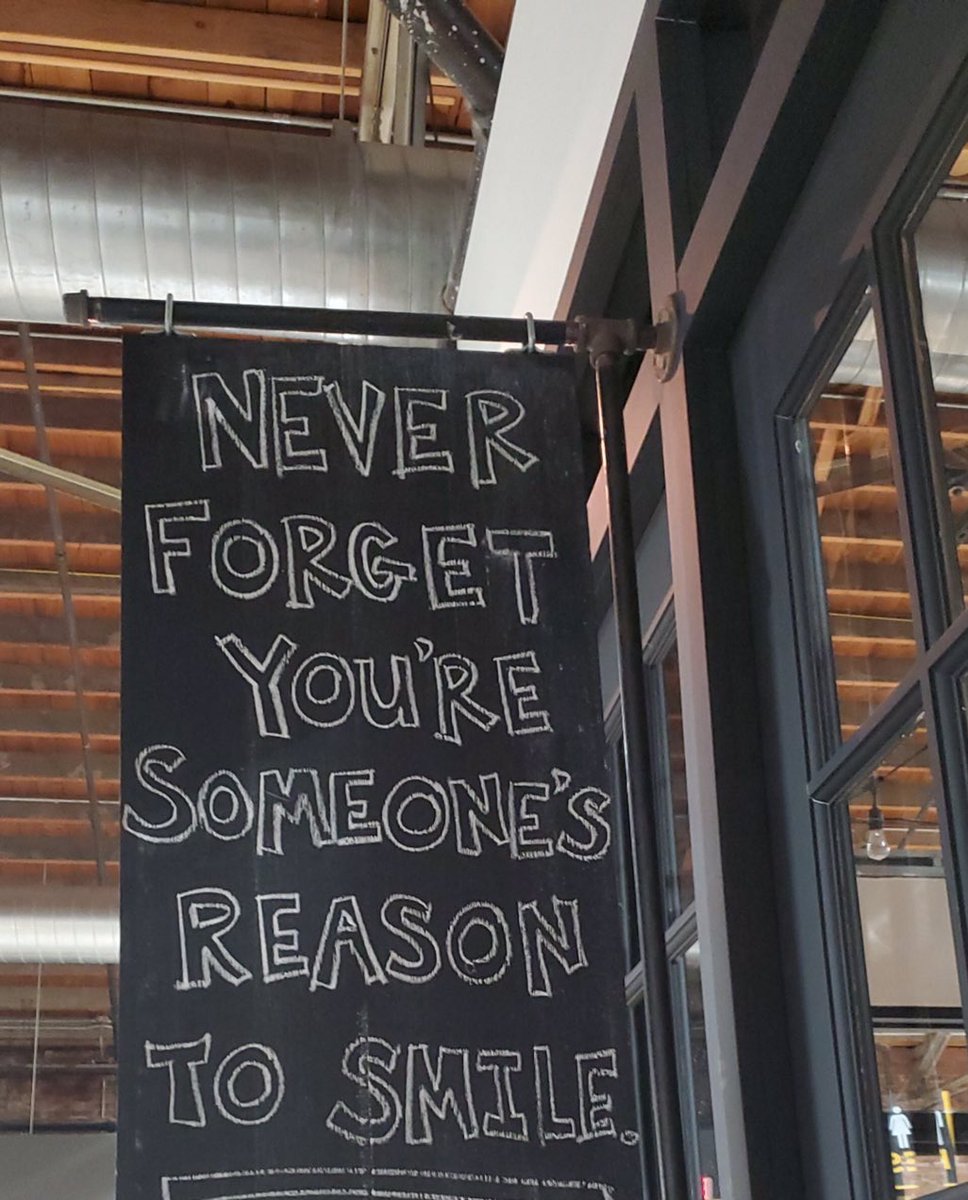 NEVER
FORGET
YOU'RE
SOMEONE'S
REASON
TO SMILE.